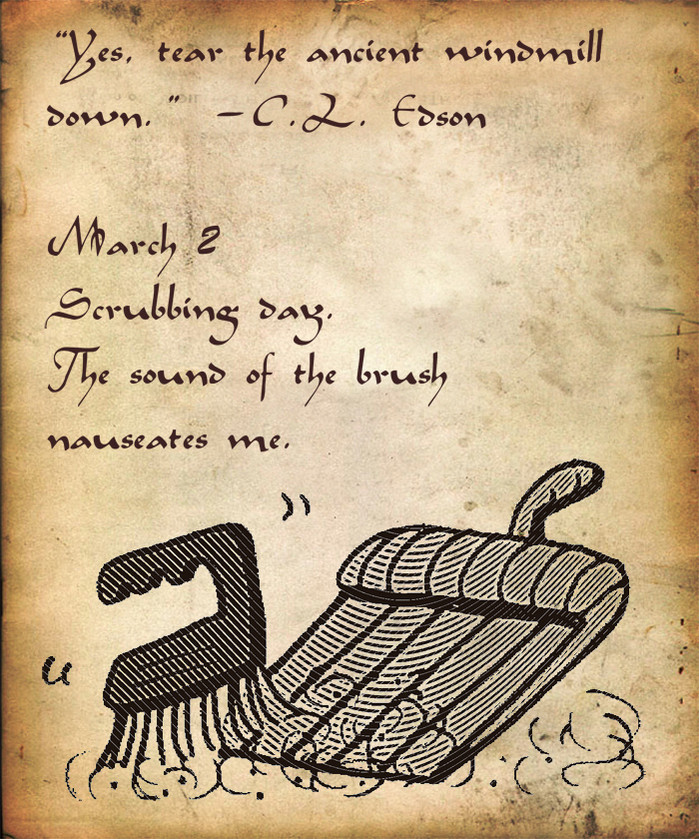 "Yes, tear the ancient windmill
down." -C.L. Edson
March 2
Scrubbing day.
The sound of the brush
nauseates me.